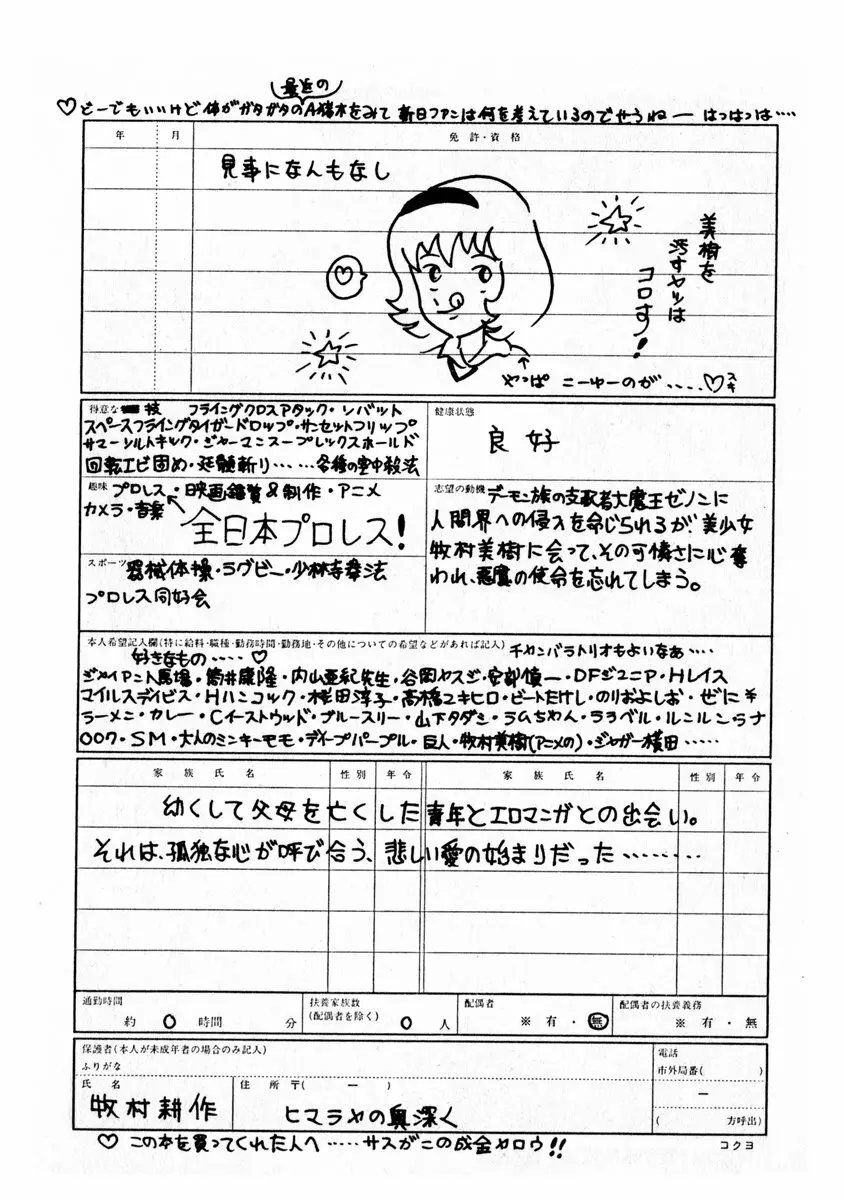 最近の
♡どーでもいいけど体がガタガタのA猪木をみて新日ファンは何を考えているのでせうねー はっはっは‥‥
年 月 免許・資格
見事になんもなし
美樹を
汚すヤツは
コロす!
♡
やっぱ こーゆーのが‥‥‥♡スキ
得意な 技 フライングクロスアタック・シバット
スペースフライングタイガードロップ・サンセットフリップ
サマーソルトキック・ジャーマンスープレックスホールド
回転エビ固め・延髄斬り‥‥‥各種の空中殺法
健康状態
良好
趣味 プロレス・映画鑑賞&制作・アニメ
カメラ・音楽
全日本プロレス!
志望の動機 デーモン族の支配者大魔王ゼノンに
人間界への侵入を命じられるが、美少女
牧村美樹に会って、その可憐さに心奪
われ、悪魔の使命を忘れてしまう。
スポーツ 器械体操・ラグビー・少林寺拳法
プロレス同好会
本人希望記入欄(特に給料・職種・勤務時間・勤務地・その他についての希望などがあれば記入) チャンバラトリオもよいなあ‥‥
好きなもの‥‥♡
ジャイアント馬場・筒井康隆・内山亜紀先生・谷岡ヤスジ・安部慎一・DFジュニア・Hレイス
マイルスデイビス・Hハンコック・桜田淳子・高橋ユキヒロ・ビートたけし・のりおよしお・ぜに¥
ラーメン・カレー・Cイーストウッド・ブルースリー・山下タダシ・ラムちゃん・ララベル・ルンルンラナ
007・SM・大人のミンキーモモ・デイープパープル・巨人・牧村美樹(アニメの)・ジャガー横田‥‥‥
家族氏名 性別 年令 家族氏名 性別 年令
幼くして父母を亡くした青年とエロマンガとの出会い。
それは、孤独な心が呼び合う、悲しい愛の始まりだった‥‥‥‥
通勤時間
約 0 時間 分
扶養家族数
(配偶者を除く) 0 人
配偶者
※ 有・無
配偶者の扶養義務
※ 有・無
保護者(本人が未成年者の場合のみ記入)
ふりがな
氏 名
牧村耕作
住 所 〒( ー )
ヒマラヤの奥深く
電話
市外局番( )
ー
( 方呼出)
♡ この本を買ってくれた人へ‥‥‥サスがこの成金ヤロウ!!
コクヨ